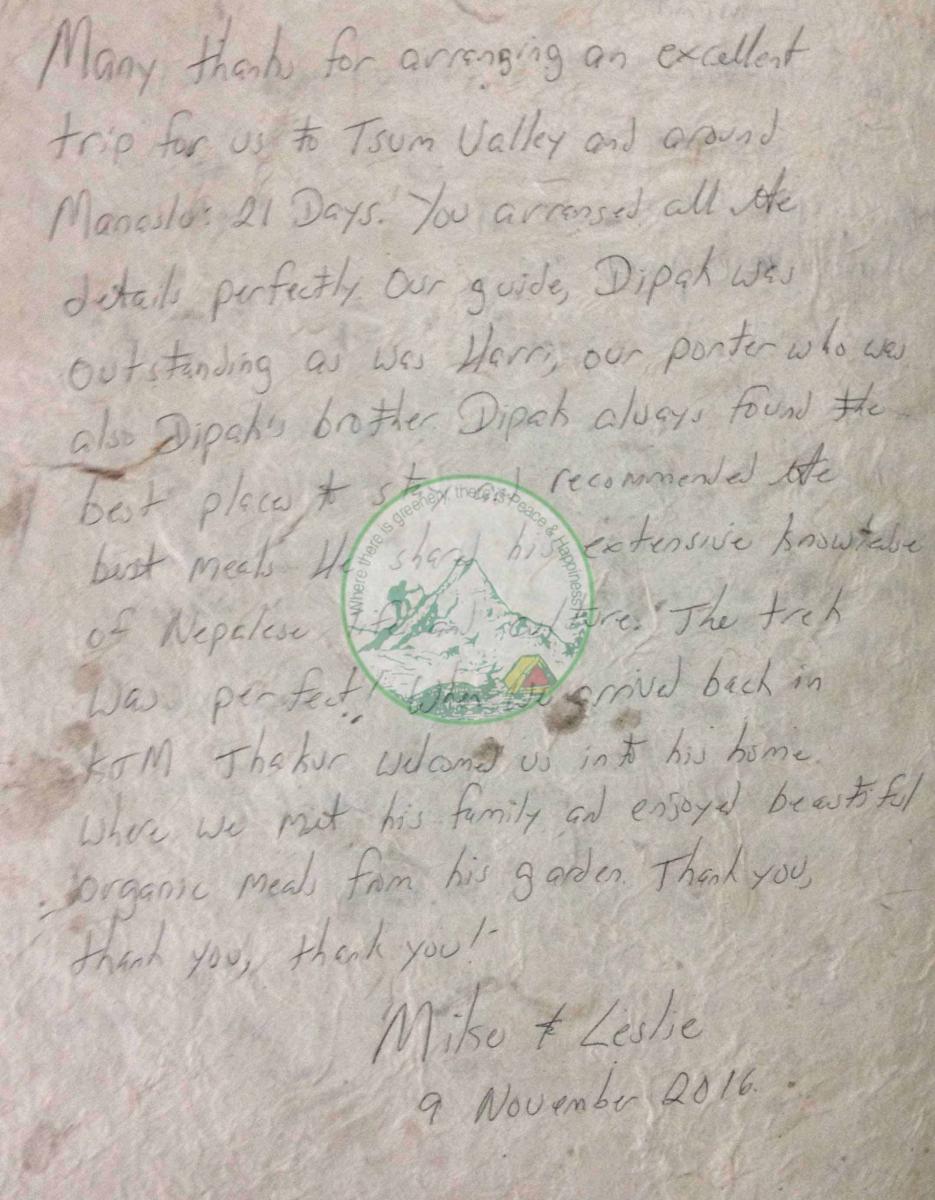 Many thanks for arranging an excellent
trip for us to Tsum Valley and around
Manaslu: 21 Days. You arranged all the
details perfectly. Our guide, Dipak was
outstanding as was Harri, our porter who was
also Dipak's brother. Dipak always found the
best places to stay and recommended the
best meals. He shared his extensive knowledge
of Nepalese life and culture. The trek
was perfect! When we arrived back in
KTM Thakur welcomed us into his home
where we met his family and enjoyed beautiful
organic meals from his garden. Thank you,
thank you, thank you!
Mike & Leslie
9 November 2016.
Where there is greenery, there is Peace & Happiness